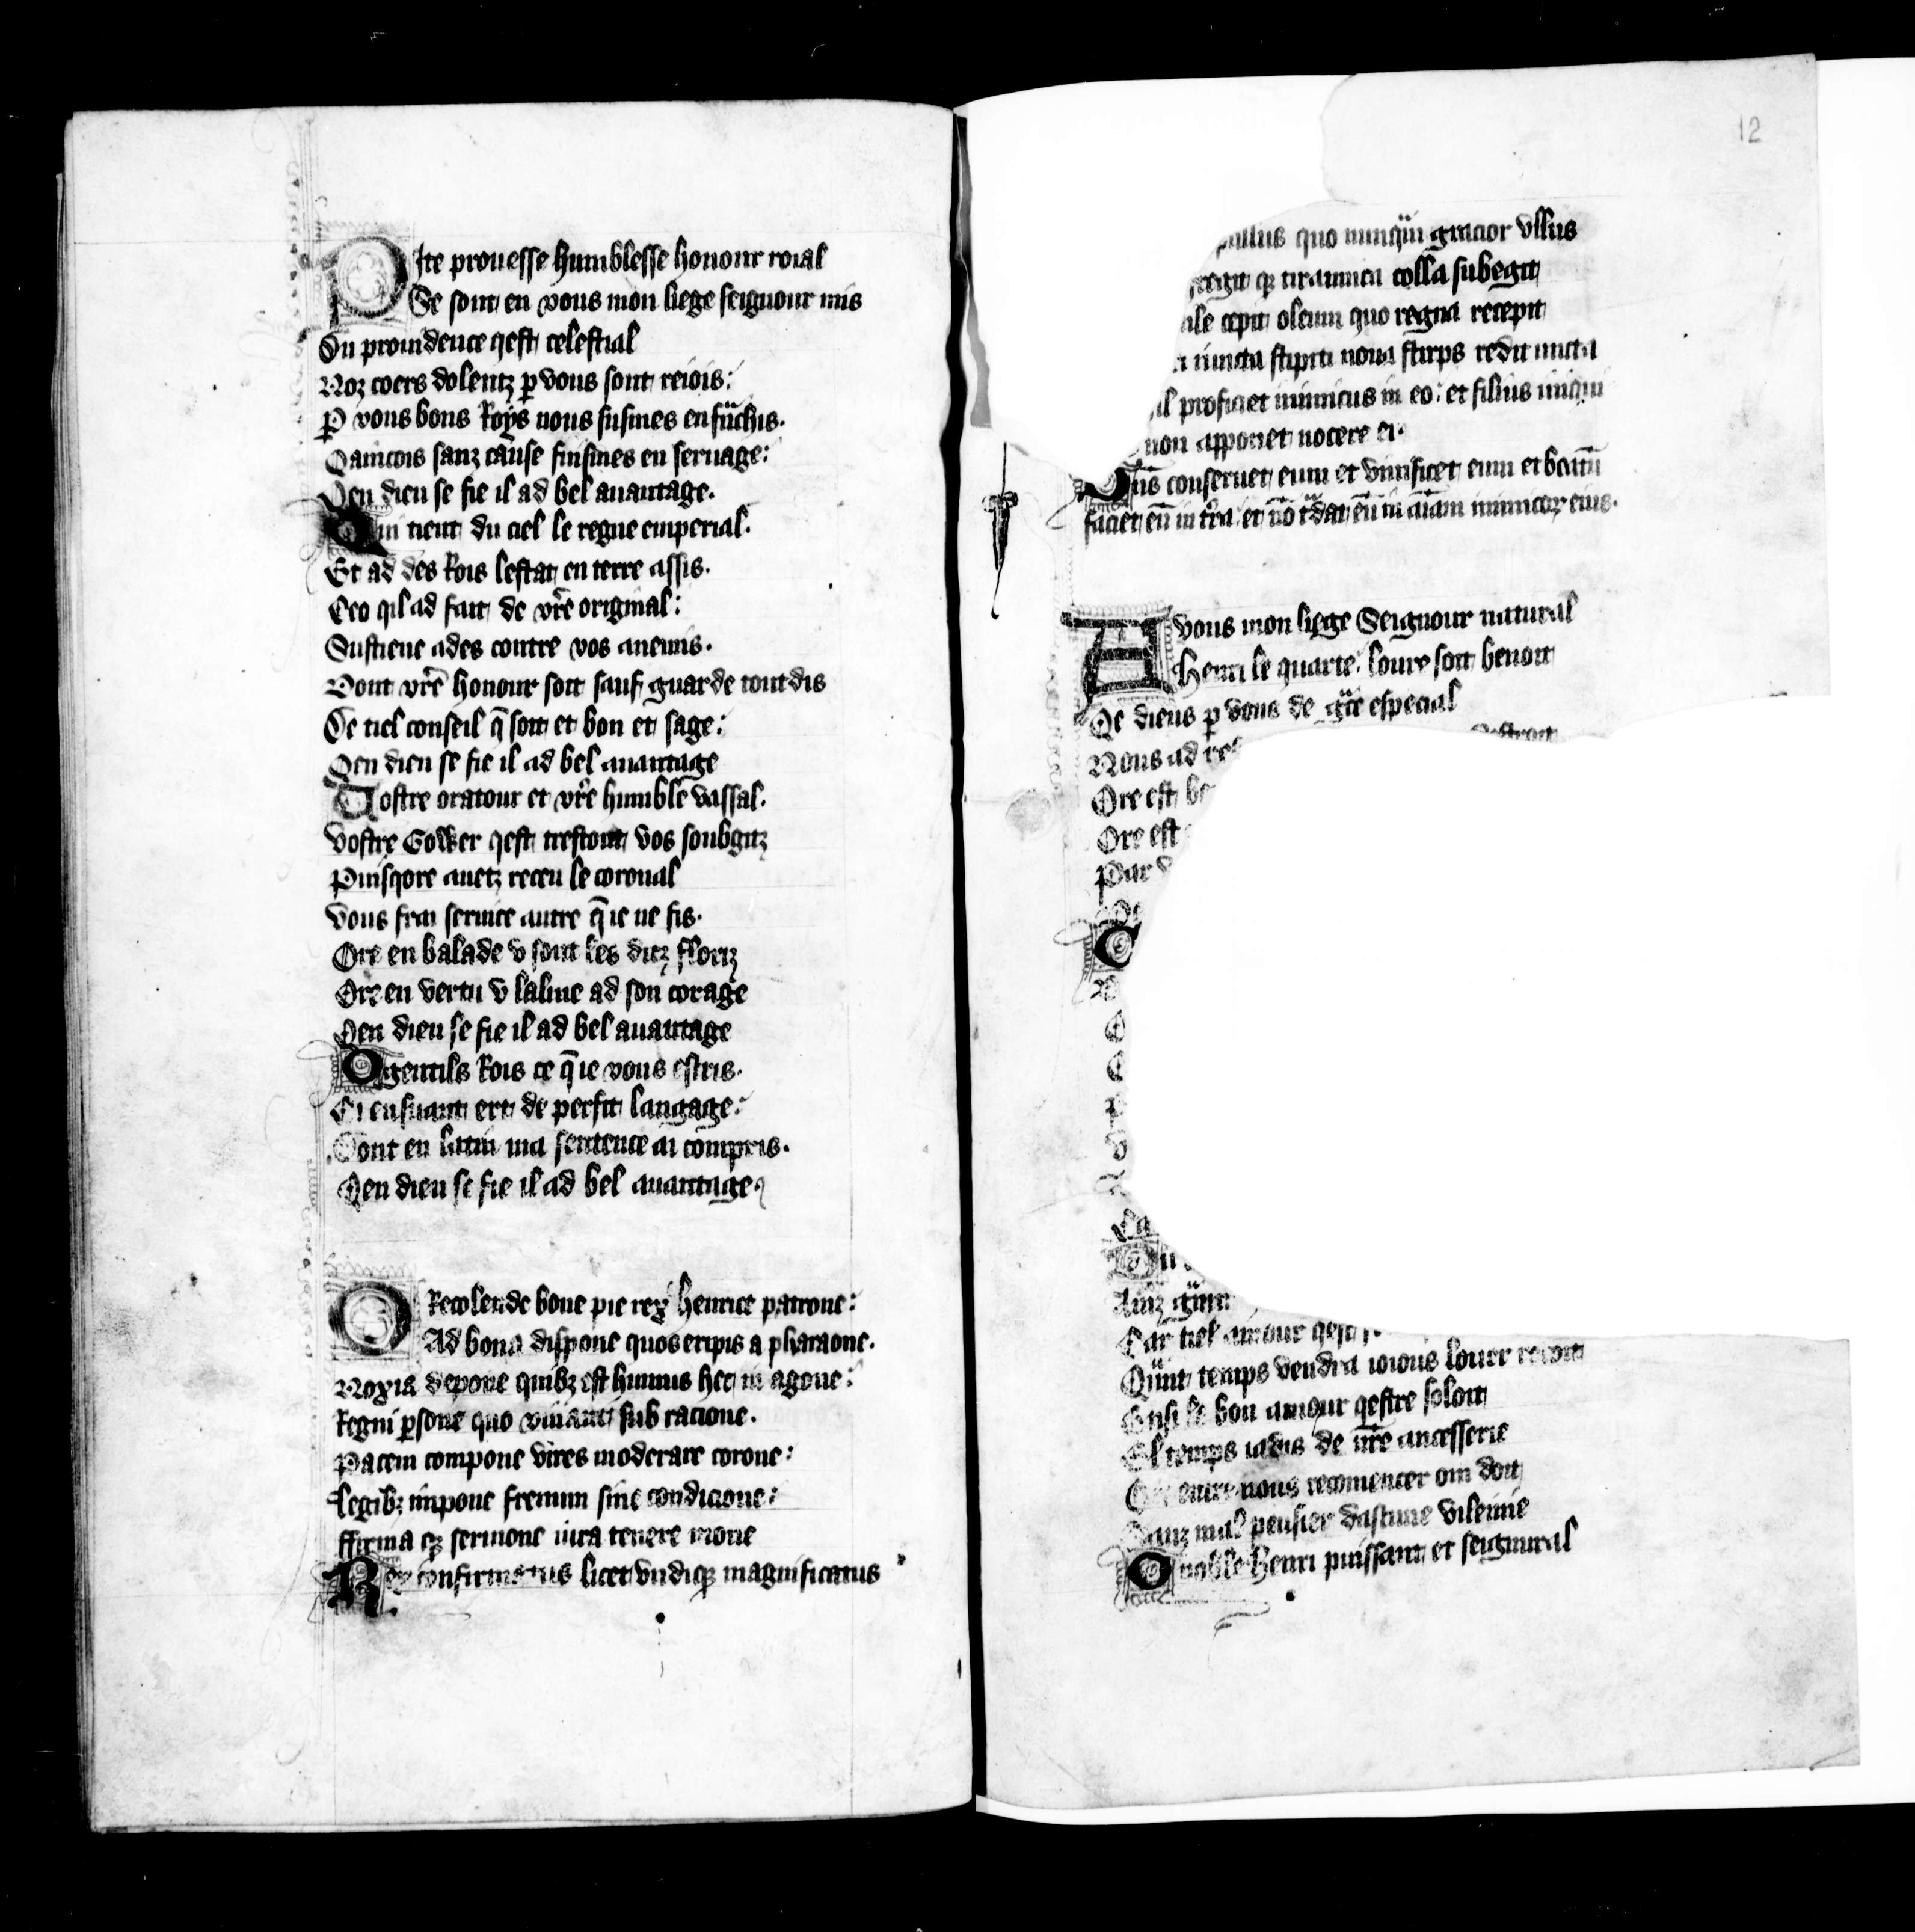 Pite prouesse humblesse honour roial
Se sont en vous mon liege seignour mis
Du prouidence qest celestial
Noz coers dolentz ꝑ vous sont reiois:
Ꝑ vous bons Roys nous susmes enfᵃnchis.
Qainçois sanz cause fuismes en seruage:
Qen dieu se fie il ad bel auantage.
Qui tient du ciel le regne emperial.
Et ad des Rois lestat en terre assis.
Ceo qil ad fait de vr̄e original:
Sustiene ades contre vos anemis.
Dont vr̄e honour soit sauf guarde tout dis
De tiel conseil q̄ soit et bon et sage:
Qen dieu se fie il ad bel auantage
Vostre oratour et vr̄e humble vassal.
Vostre Gower qest trestout vos soubgitz
Puisqore auetz receu le coronal
Vous frai seruice autre q̄ ie ne fis.
Ore en balade v sont les ditz floriz
Ore en vertu v lalme ad son corage
Qen dieu se fie il ad bel auantage
O gentils Rois ce q̄ ie vous escris.
Ci ensuant ert de perfit langage:
Dont en latin ma sentence ai compris.
Qen dieu se fie il ad bel auantage
O Recolende bone pie rex Henrice patrone:
Ad bona dispone quos eripis a pharaone.
Noxia depone quibꝫ est humus hec in agone:
Regni ꝑsone quo viuant sub racione.
Pacem compone vires moderare corone:
Legibꝫ impone frenum sine condicione:
ffirma qꝫ sermone iura tenere mone
Rex confirmatus licet vndiqꝫ magnificatus
12
quo nunqᵃm gracior vllus
qꝫ tirannica colla subegit
cepit oleum quo regna recepit
iuncta stipiti noua stirps redit uncta
proficiet inimicus in eo: et filius iniqui
non apponet nocere ei.
Dn̄s conseruet eum et viuificet eum et beatū
faciet eū in tr̄a et nō tᵃdat eū in aīam inimicoꝝ eius.
A vous mon liege Seignour natural
Henri le quarte: loure soit benoit
Qe dieus ꝑ vous de gᵃce especial
Nous ad re
Ore est be
Ore est
Par v
C
Ainz
Car tiel amour qest
Qᵃnt temps vendra ioious louer recoit
Ensi le bon amour qestre soloit
El temps iadis de nr̄e ancesserie
Ore entre nous recomencer om doit
Sanz mal pensier dascune vileinie
O noble Henri puissant et seignural